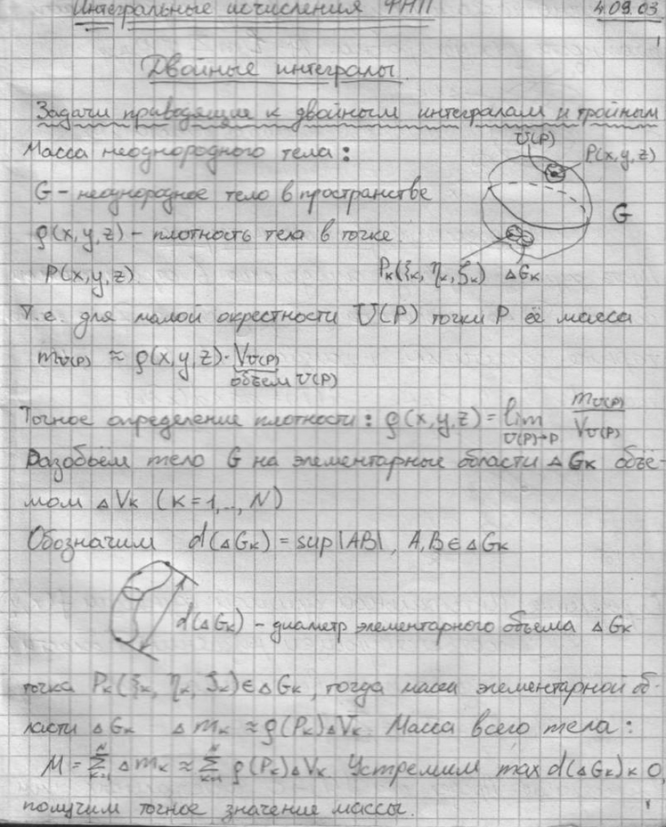 Интегральные исчисления ФНП 4.09.03
1
Двойные интегралы.
Задачи приводящие к двойным интегралам и тройным
Масса неоднородного тела:
U(P) P(x,y,z)
G - неоднородное тело в пространстве
G
ρ(x,y,z) - плотность тела в точке
P(x,y,z)
Pₖ(ξₖ, ηₖ, ζₖ) ΔGₖ
Т.е. для малой окрестности U(P) точки P её масса
m_U(P) ≈ ρ(x,y,z)·V_U(P)
объем U(P)
Точное определение плотности: ρ(x,y,z) = lim_{U(P)→P} m_U(P)/V_U(P)
Разобьём тело G на элементарные области ΔGₖ объё-
мом ΔVₖ (k=1,..,N)
Обозначим d(ΔGₖ) = sup|AB|, A,B ∈ ΔGₖ
d(ΔGₖ) - диаметр элементарного объема ΔGₖ
точка Pₖ(ξₖ, ηₖ, ζₖ) ∈ ΔGₖ, тогда масса элементарной об-
ласти ΔGₖ Δmₖ ≈ ρ(Pₖ)ΔVₖ Масса всего тела:
M = Σ_{k=1}^{N} Δmₖ ≈ Σ_{k=1}^{N} ρ(Pₖ)ΔVₖ Устремим max d(ΔGₖ) к 0,
получим точное значение массы.